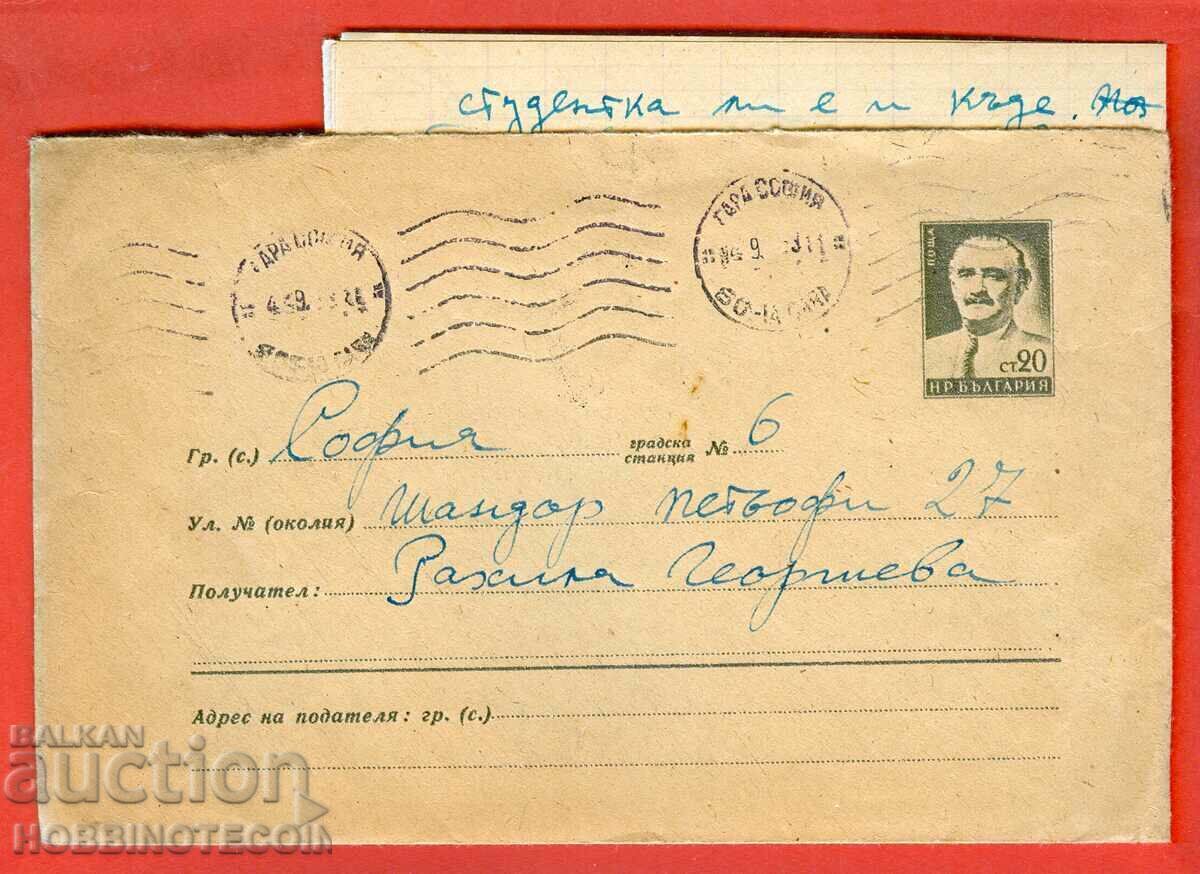 студентка ли е и къде.
ГАРА СОФИЯ
ГАРА СОФИЯ
ПОЩА
СТ 20
НР БЪЛГАРИЯ
Гр. (с.) София градска станция № 6
Ул. № (околия) Шандор Петьофи 27
Получател: Рахила Георгиева
Адрес на подателя: гр. (с.)
BALKAN
auction
HOBBINOTECOIN